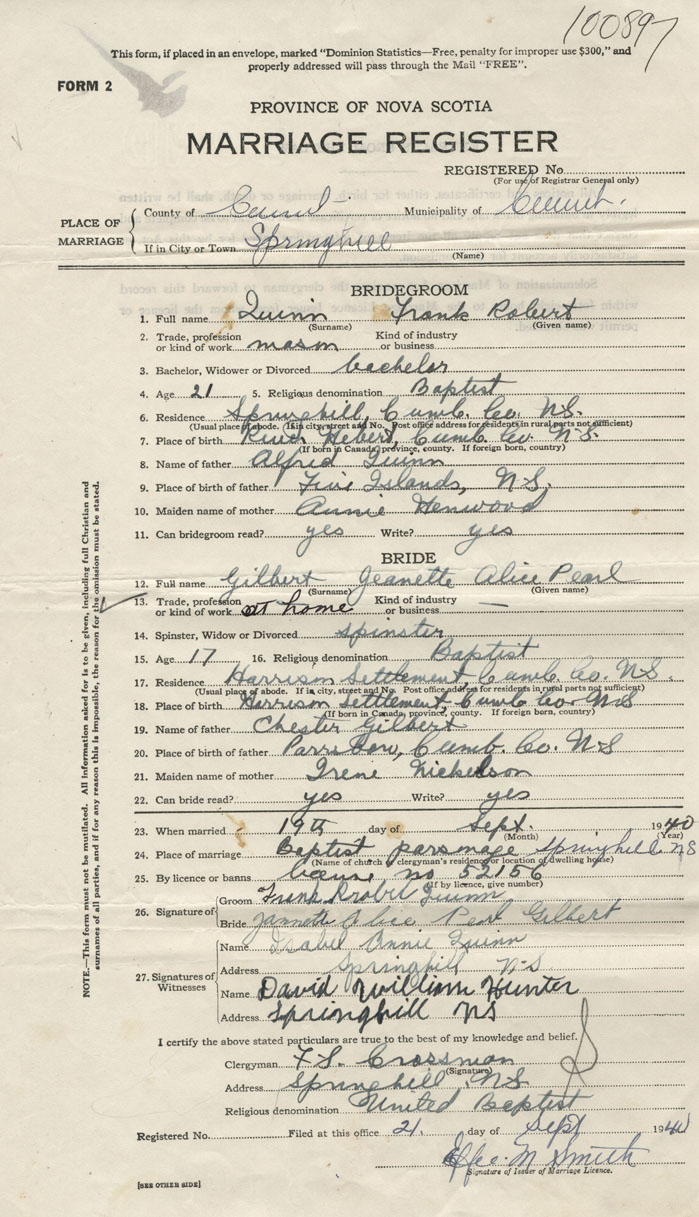 100897
This form, if placed in an envelope, marked "Dominion Statistics—Free, penalty for improper use $300," and
properly addressed will pass through the Mail "FREE".
FORM 2
PROVINCE OF NOVA SCOTIA
MARRIAGE REGISTER
REGISTERED No.
(For use of Registrar General only)
PLACE OF MARRIAGE
County of Municipality of
If in City or Town Springhill
(Name)
BRIDEGROOM
1. Full name Quinn Frank Robert
(Surname) (Given name)
2. Trade, profession or kind of work mason Kind of industry or business
3. Bachelor, Widower or Divorced bachelor
4. Age 21 5. Religious denomination Baptist
6. Residence Springhill, Cumb. Co. N.S.
(Usual place of abode. If in city, street and No. Post office address for residents in rural parts not sufficient)
7. Place of birth River Hebert, Cumb. Co. N.S.
(If born in Canada, province, county. If foreign born, country)
8. Name of father Alfred Quinn
9. Place of birth of father Five Islands, N.S.
10. Maiden name of mother Annie Henwood
11. Can bridegroom read? yes Write? yes
BRIDE
12. Full name Gilbert Jeanette Alice Pearl
(Surname) (Given name)
13. Trade, profession or kind of work at home Kind of industry or business —
14. Spinster, Widow or Divorced spinster
15. Age 17 16. Religious denomination Baptist
17. Residence Harrison Settlement, Cumb. Co. N.S.
(Usual place of abode. If in city, street and No. Post office address for residents in rural parts not sufficient)
18. Place of birth Harrison Settlement, Cumb. Co. N.S
(If born in Canada, province, county. If foreign born, country)
19. Name of father Chester Gilbert
20. Place of birth of father Parrsboro, Cumb. Co. N.S
21. Maiden name of mother Irene Nickelson
22. Can bride read? yes Write? yes
23. When married 19th day of Sept. 1940
(Month) (Year)
24. Place of marriage Baptist parsonage Springhill NS
(Name of church or clergyman's residence or location of dwelling house)
25. By licence or banns license no 52156
(If by licence, give number)
26. Signature of
Groom Frank Robert Quinn
Bride Jannette Alice Pearl Gilbert
27. Signatures of Witnesses
Name Isabel Annie Quinn
Address Springhill N-S
Name David William Hunter
Address Springhill NS
I certify the above stated particulars are true to the best of my knowledge and belief.
Clergyman F.S. Crossman
(Signature)
Address Springhill, N.S.
Religious denomination United Baptist
Registered No. Filed at this office 21. day of Sept 1940
Effie M Smith
Signature of Issuer of Marriage Licence.
[SEE OTHER SIDE]
NOTE.—This form must not be mutilated. All information asked for is to be given, including full Christian and
surnames of all parties, and if for any reason this is impossible, the reason for the omission must be stated.